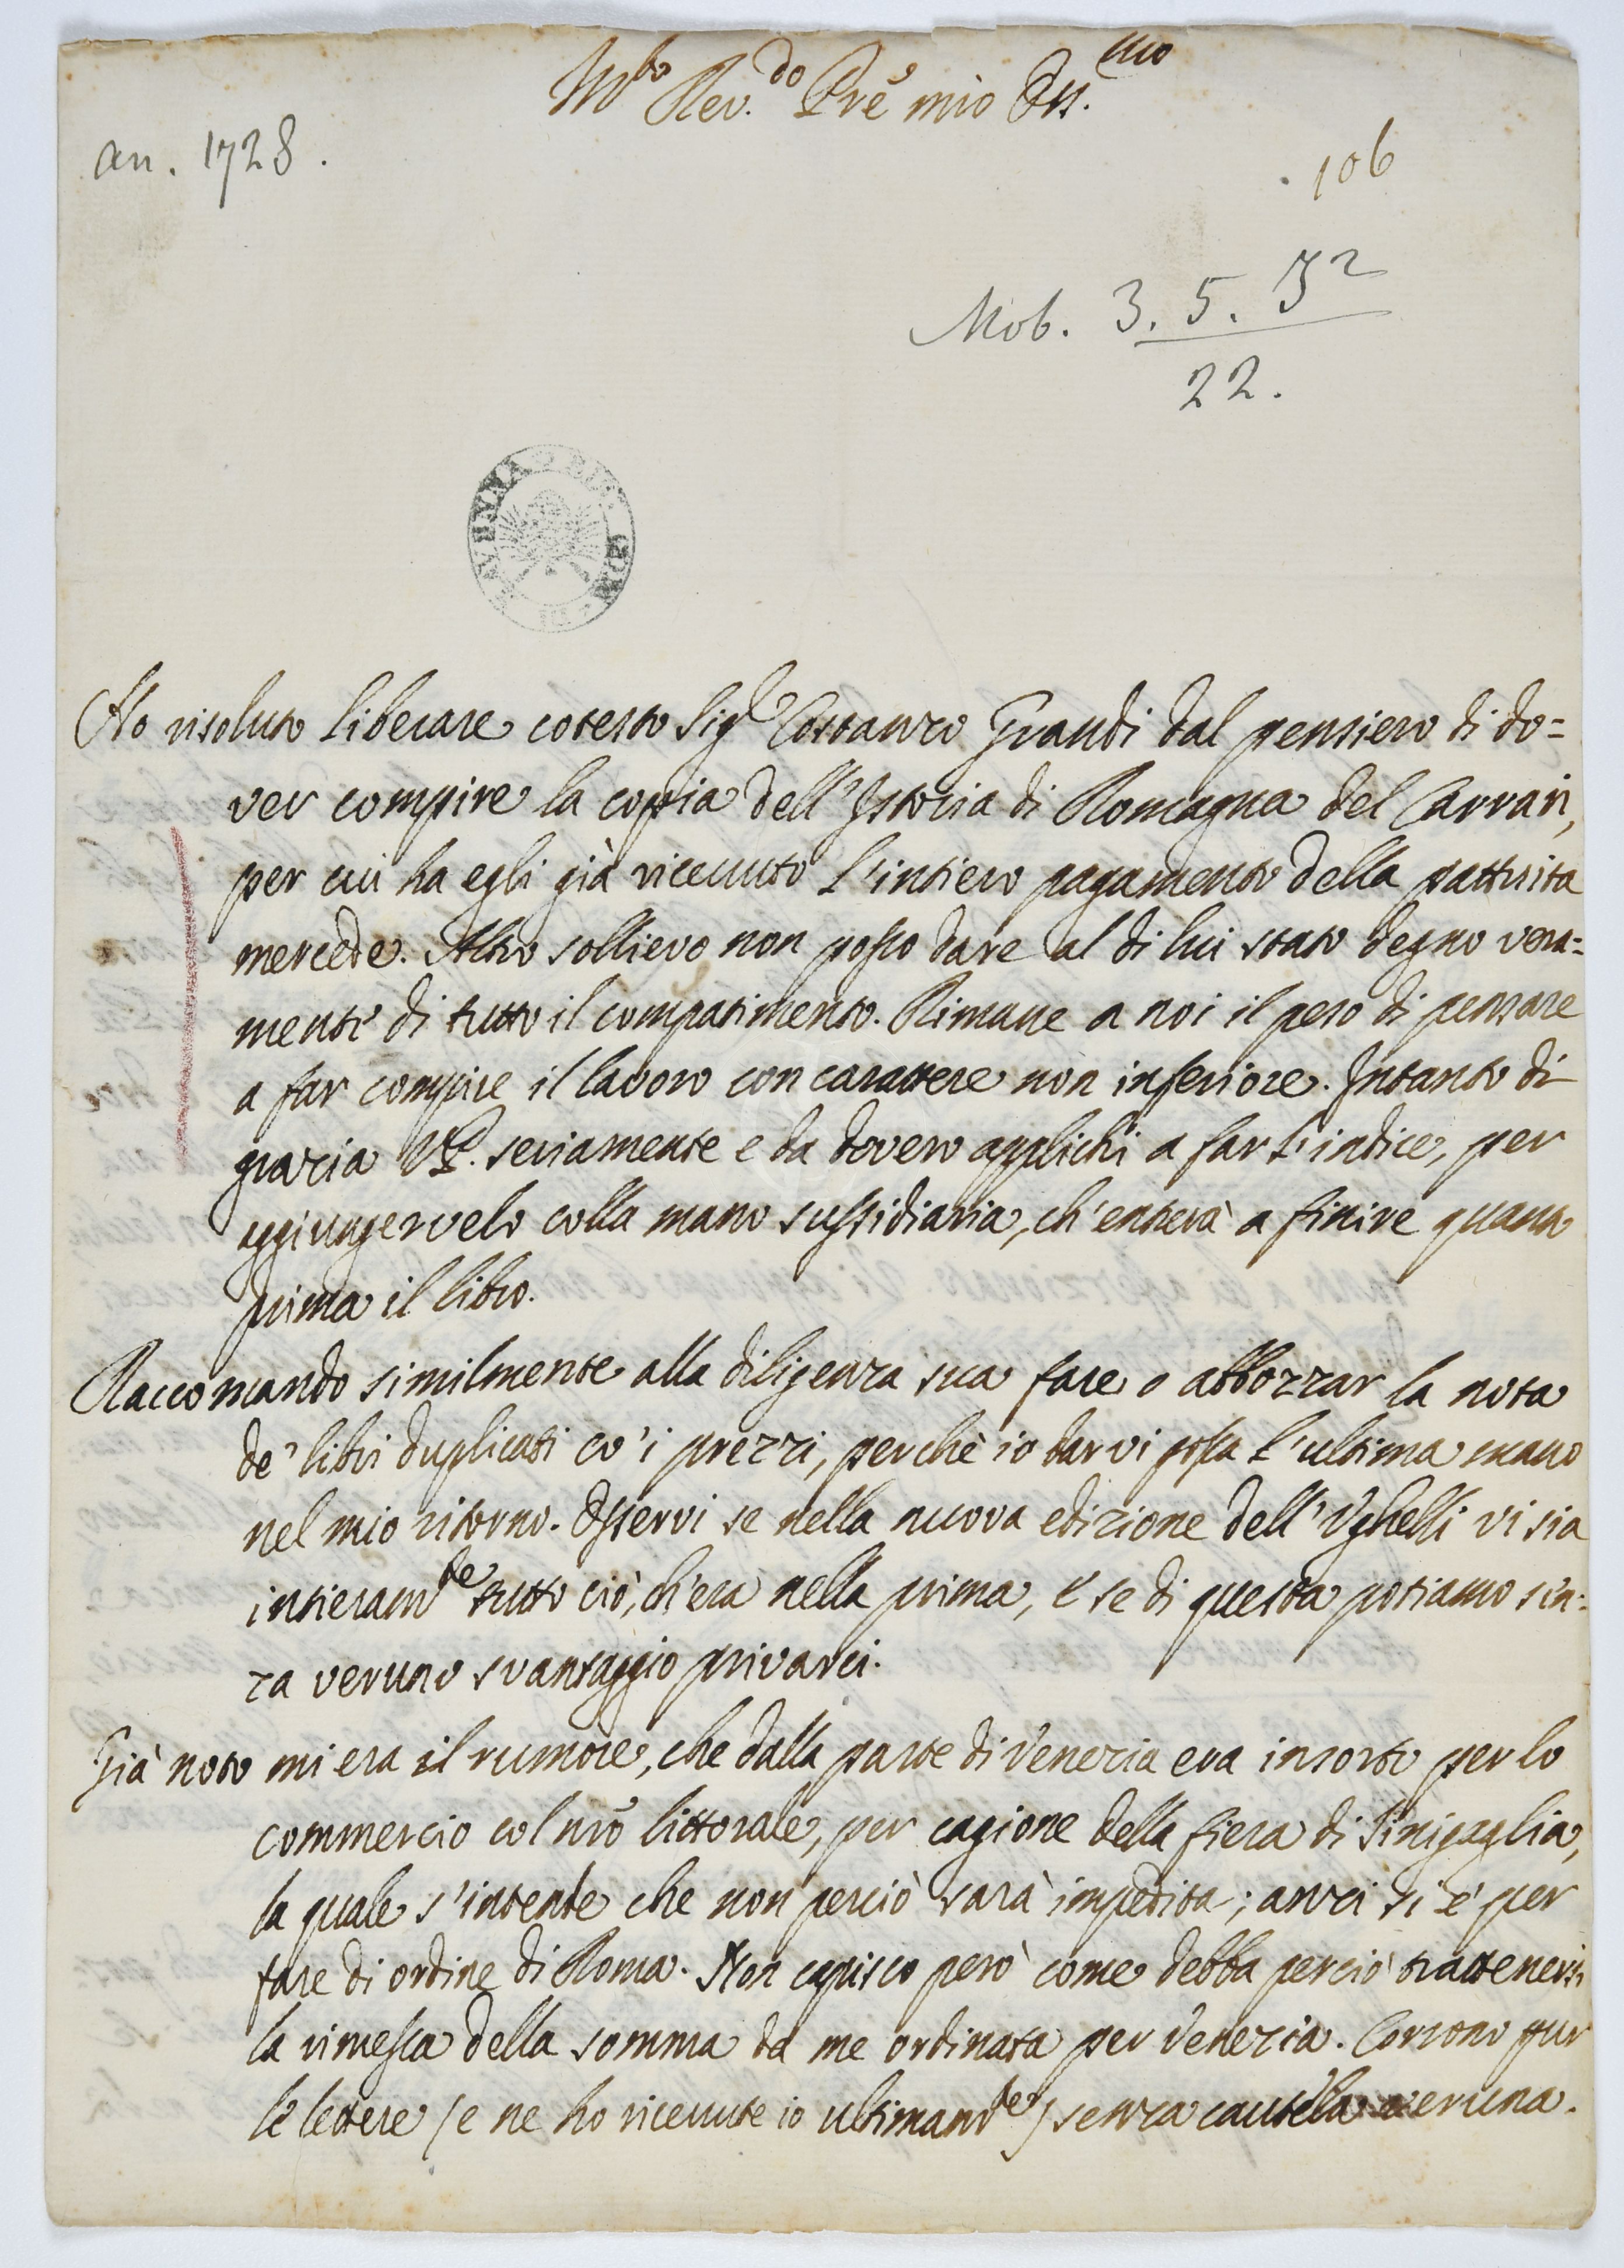 M.to Rev.do Prē mio Oss.mo
an. 1728.
. 106
Mob. 3. 5. J2
22.
Ho risoluto liberare cotesto Sig.r Costanzo Grandi dal pensiero di do=
ver compire la copia dell'Istoria di Romagna del Carrari,
per cui ha egli già ricevuto l'intiero pagamento della pattuita
mercede. Altro sollievo non posso dare al di lui stato degno vera=
mente di tutto il compatimento. Rimane a noi il peso di pensare
a far compire il lavoro con carattere non inferiore. Intanto di
grazia V.P. seriamente e da dovero applichi a far l'indice, per
aggiungervelo colla mano sussidiaria, ch'entrerà a finire quanto
prima il libro.
Raccomando similmente alla diligenza sua fare o abbozzar la nota
de' libri duplicati co' i prezzi, perchè io darvi possa l'ultima mano
nel mio ritorno. Osservi se nella nuova edizione dell'Ughelli vi sia
intieram.te tutto ciò, ch'era nella prima, e se di questa potiamo sen=
za veruno svantaggio privarci.
Già noto mi era il rumore, che dalla parte di Venezia era insorto per lo
commercio col nrō littorale, per cagione della fiera di Sinigaglia,
la quale s'intende che non perciò sarà impedita; anzi si è per
fare di ordine di Roma. Non capisco però come debba perciò trattenersi
la rimessa della somma da me ordinata per Venezia. Corrono pur
le lettere (e ne ho ricevute io ultimam.te) senza cautela veruna.